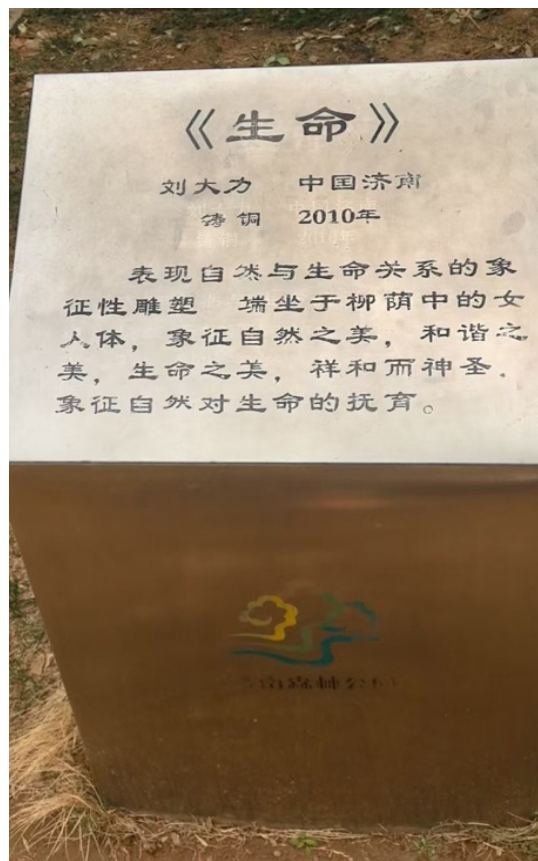 《生命》
刘大力 中国济南
铸铜 2010年
表现自然与生命关系的象
征性雕塑 端坐于柳荫中的女
人体，象征自然之美，和谐之
美，生命之美，祥和而神圣．
象征自然对生命的抚育。
森林